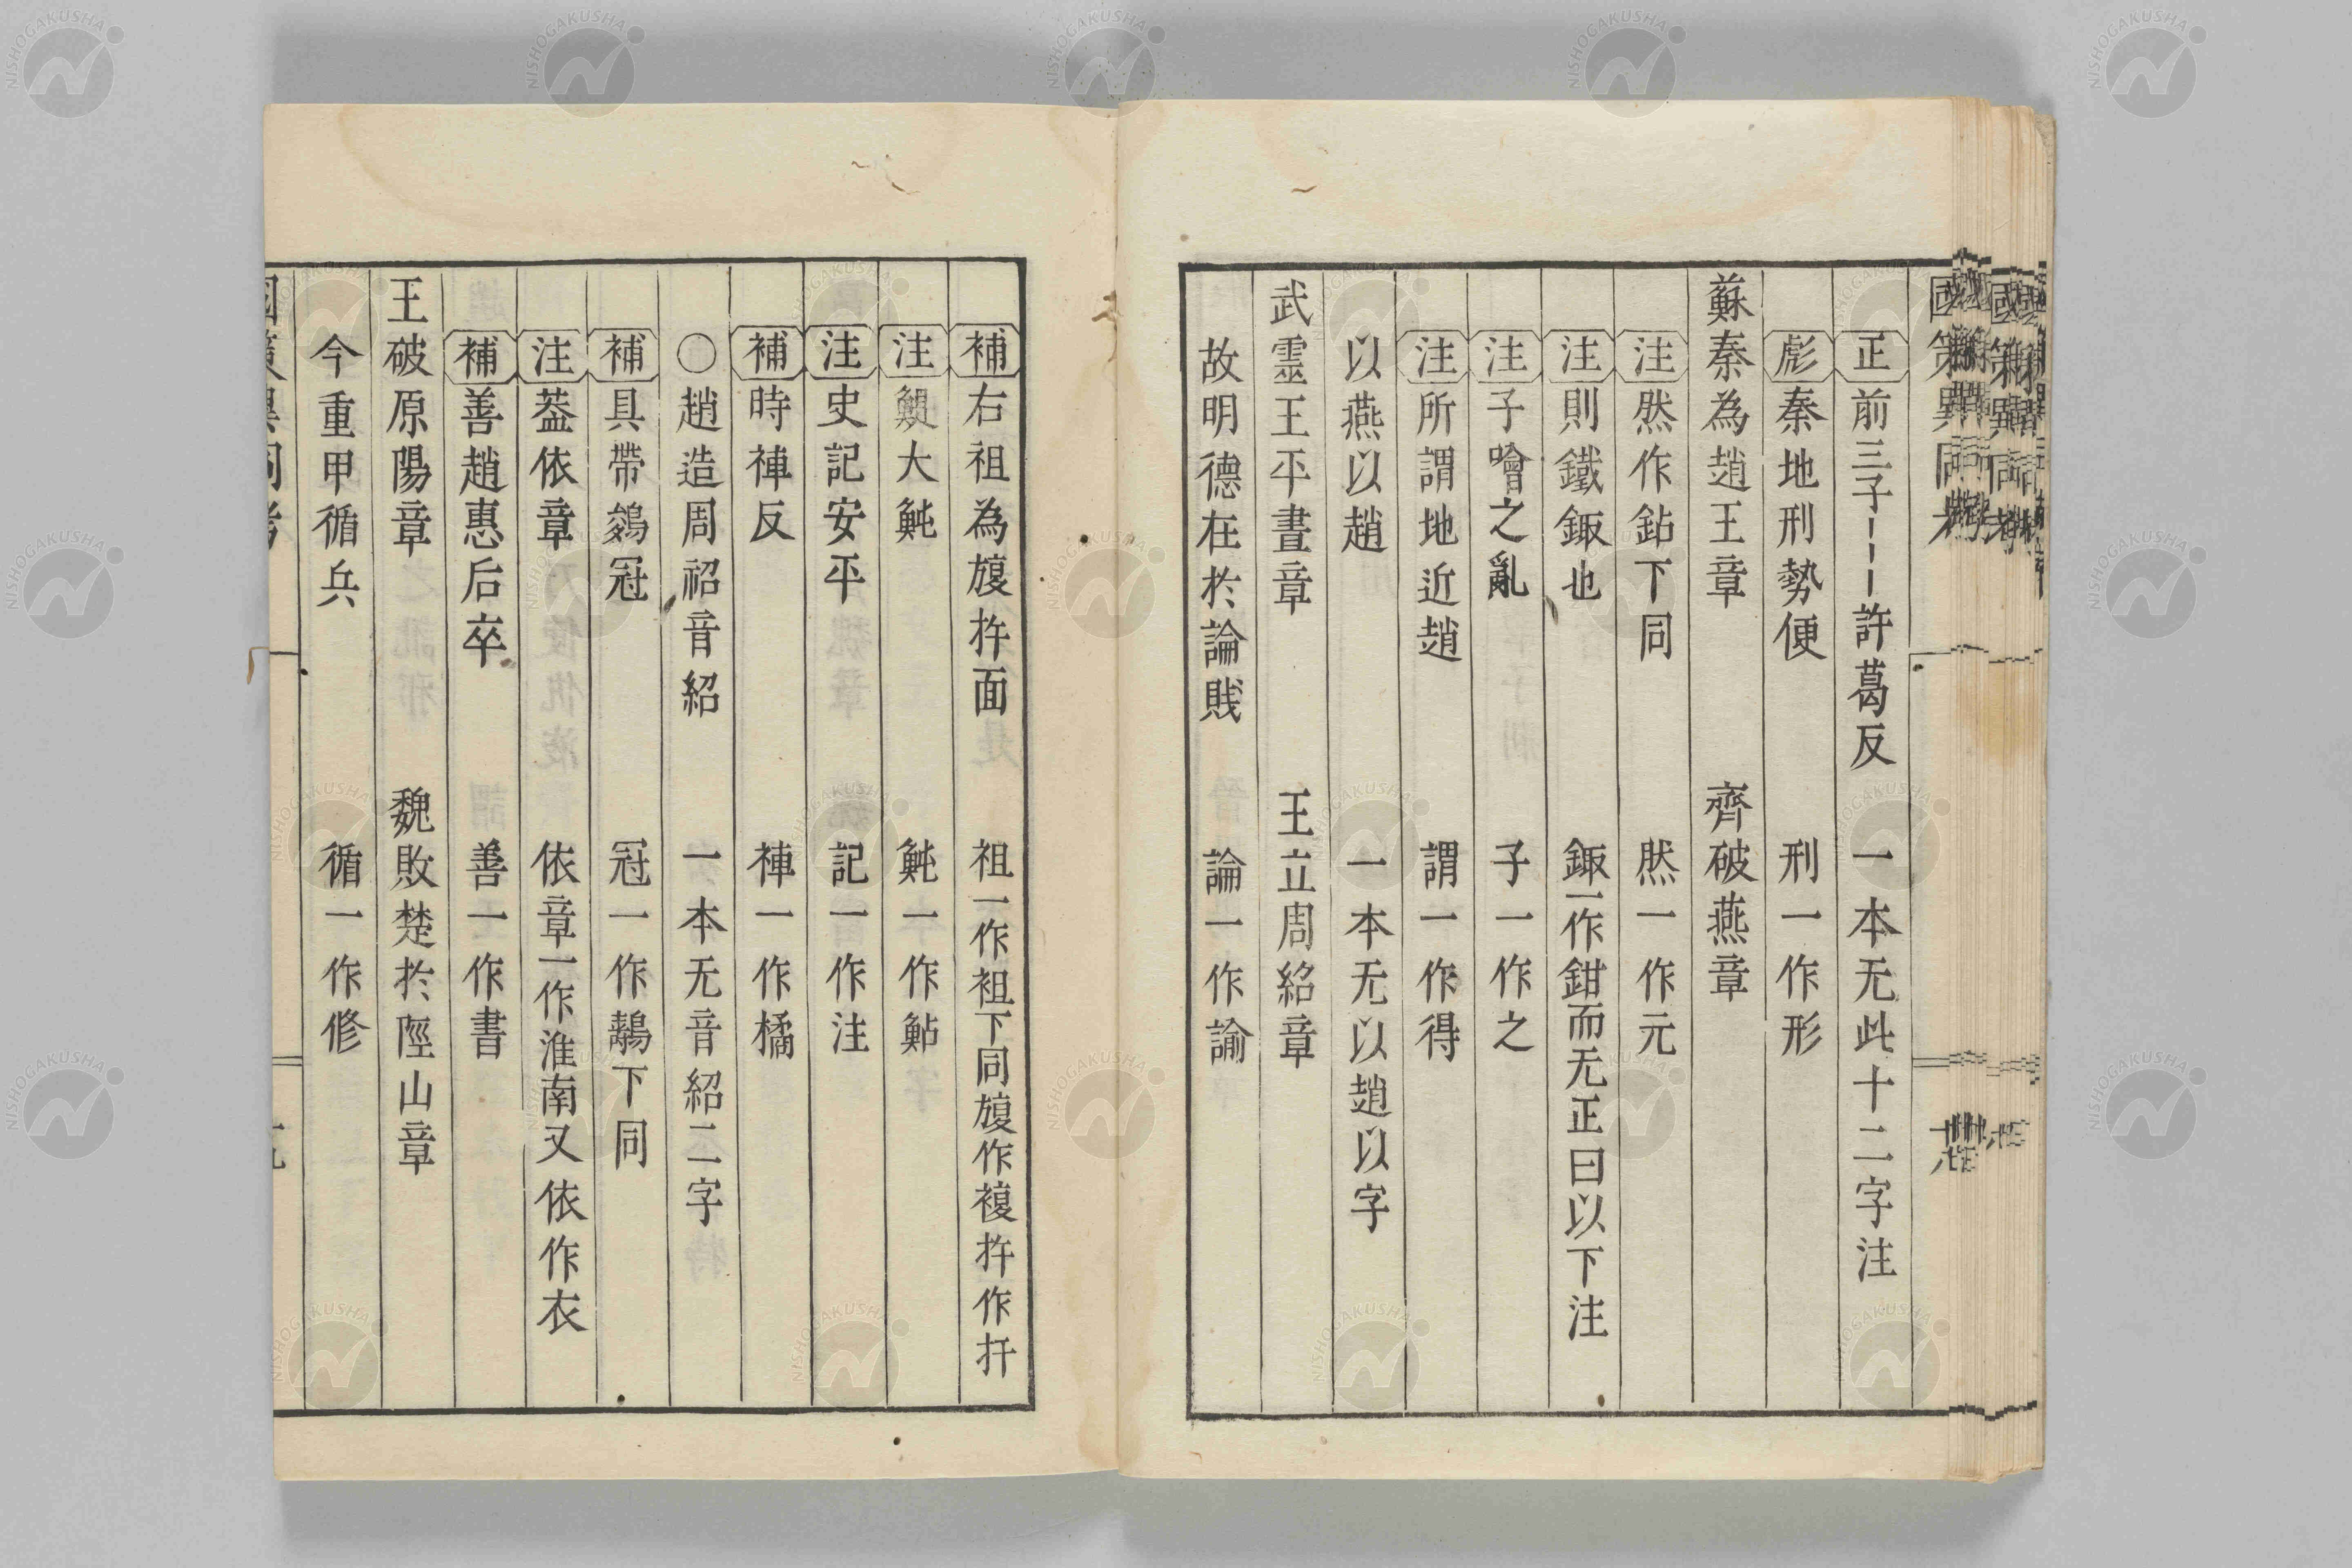 正前三子｜｜｜許葛反　一本无此十二字注
彪秦地刑勢便　刑一作形
蘇秦為趙王章　齊破燕章
注然作鉆下同　然一作元
注則鐵鋷也　鋷一作鉗而无正曰以下注
注子噲之亂　子一作之
注所謂地近趙　謂一作得
以燕以趙　一本无以趙以字
武靈王平晝章　王立周紹章
故明德在於論賎　論一作諭
補右祖為𢕛拃面　祖一作袓下同𢕛作複拃作扞
注大　一作鮎
注史記安平　記一作注
補時䘸反　䘸一作橘
〇趙造周祒音紹　一本无音紹二字
補具帶鵕冠　冠一作鷸下同
注葢依章　依章一作淮南又依作衣
補善趙惠后卒　善一作書
王破原陽章　魏敗楚於陘山章
今重甲循兵　循一作修
國策異同考
NISHOGAKUSHA